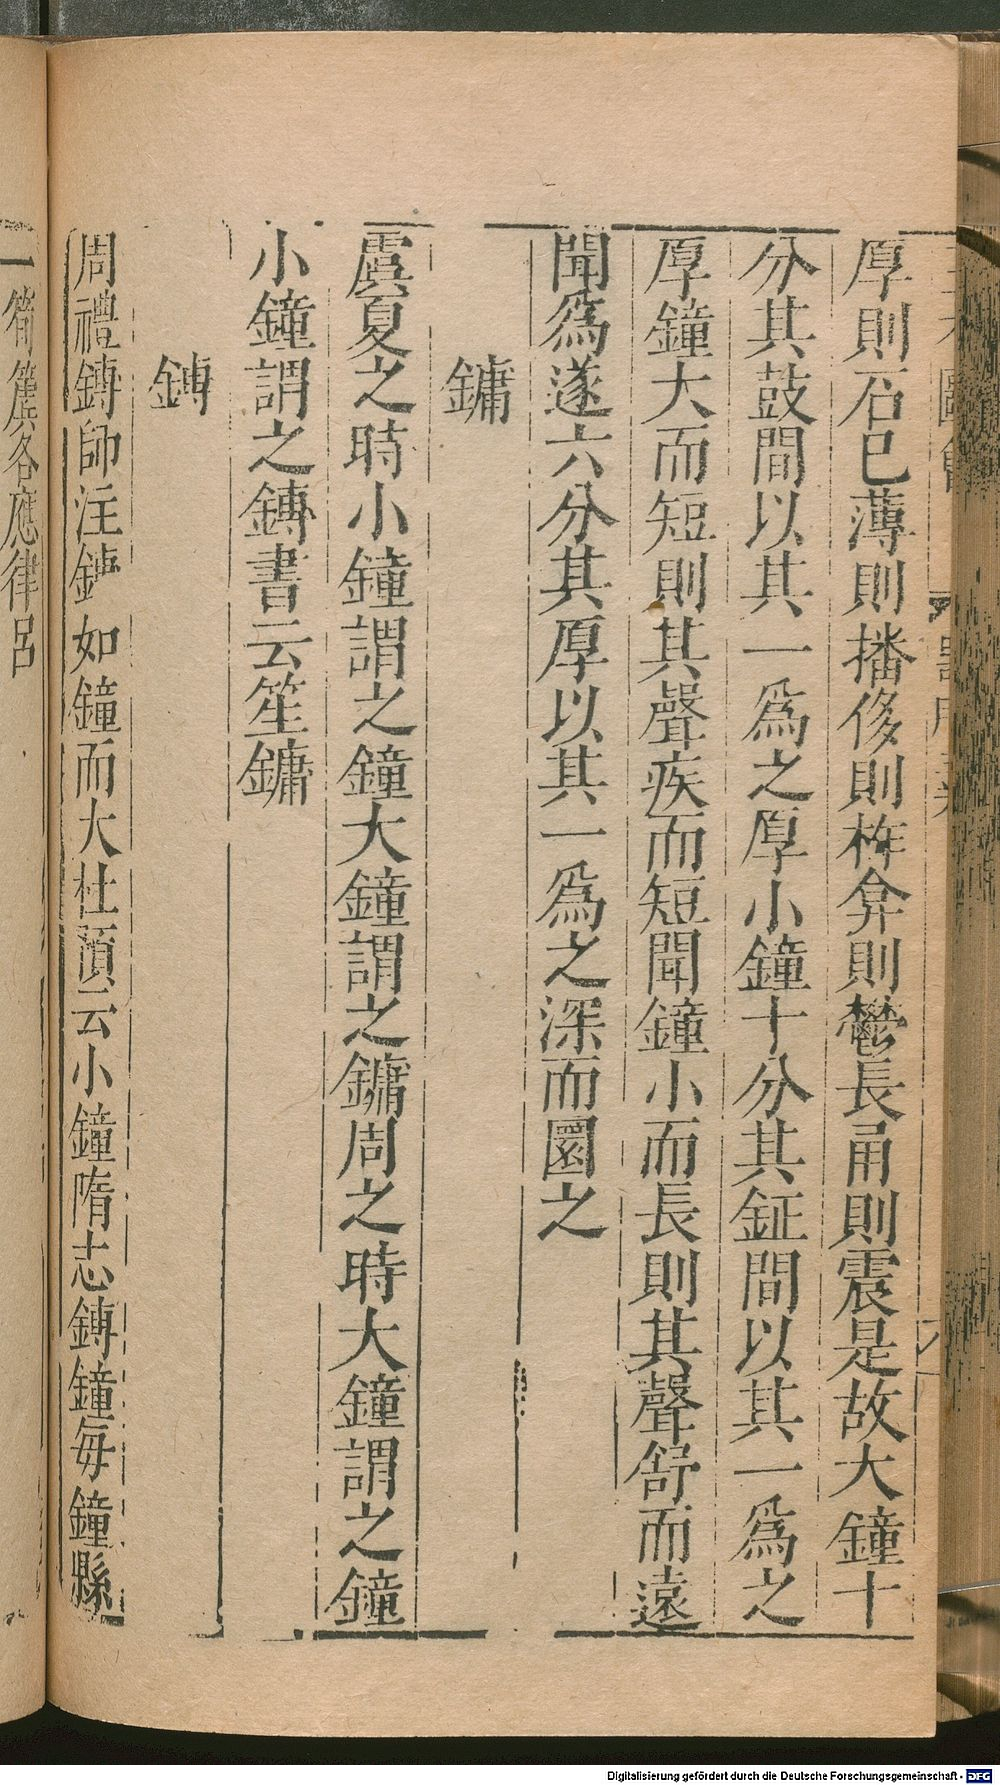 厚則石已薄則播侈則柞弇則鬱長甬則震是故大鐘十
分其鼓間以其一爲之厚小鐘十分其鉦間以其一爲之
厚鐘大而短則其聲疾而短聞鐘小而長則其聲舒而遠
聞爲遂六分其厚以其一爲之深而圜之
鏞
虞夏之時小鐘謂之鐘大鐘謂之鏞周之時大鐘謂之鐘
小鐘謂之鎛書云笙鏞
鎛
周禮鎛師注鎛如鐘而大杜預云小鐘隋志鎛鐘每鐘縣
一筍簴各應律呂
Digitalisierung gefördert durch die Deutsche Forschungsgemeinschaft - DFG